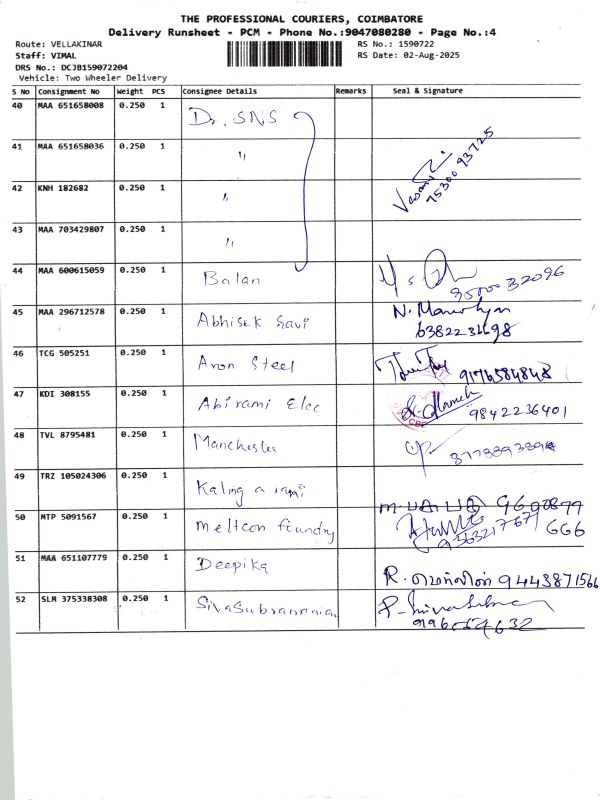 THE PROFESSIONAL COURIERS, COIMBATORE
Delivery Runsheet - PCM - Phone No.:9047080280 - Page No.:4
Route: VELLAKINAR RS No.: 1590722
Staff: VIMAL RS Date: 02-Aug-2025
DRS No.: DCJB159072204
Vehicle: Two Wheeler Delivery
S No Consignment No Weight PCS Consignee Details Remarks Seal & Signature
40 MAA 651658008 0.250 1 Dr. SNS
41 MAA 651658036 0.250 1 "
75300 93725
42 KNH 182682 0.250 1 "
43 MAA 703429807 0.250 1 "
44 MAA 600615059 0.250 1 Balan
45 MAA 296712578 0.250 1 Abhisek Savi N.
46 TCG 505251 0.250 1 Aron Steel 9176584848
47 KDI 308155 0.250 1 Abirami Elec 9842236401
48 TVL 8795481 0.250 1 Manchester
49 TRZ 105024306 0.250 1
50 MTP 5091567 0.250 1 Meltcon foundry 666
51 MAA 651107779 0.250 1 Deepika R. 9443871566
52 SLM 375338308 0.250 1 SivaSubramanian